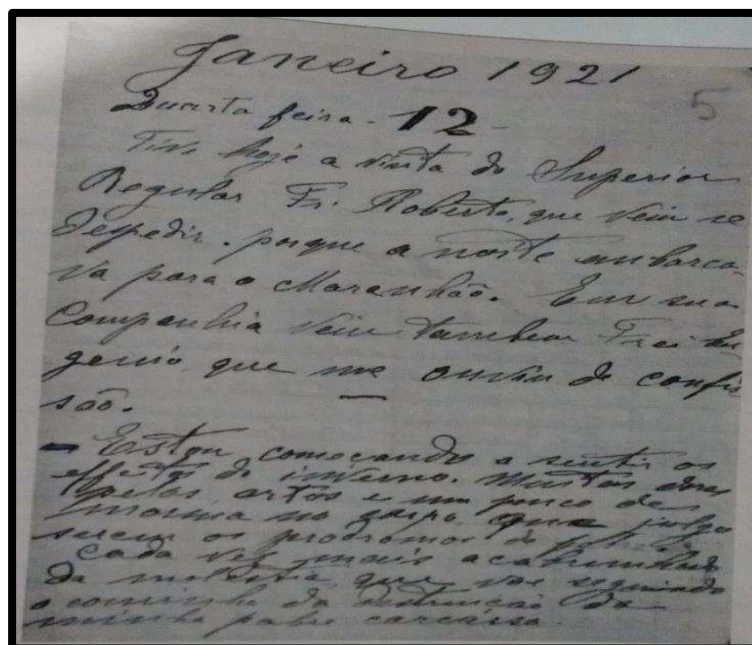 Janeiro 1921
5
Quarta feira - 12 -
Tive hoje a visita do Superior
Regular Fr. Roberto, que veiu se
despedir, porque a noite embarca-
va para o Maranhão. Em sua
Companhia veiu tambem Frei Eu-
genio que me ouviu de confis
são.
- Estou começando a sentir os
effeitos do inverno. Muitas dores
pelos artos e um pouco de
no corpo que julgo
serem os prodromos do
Cada vez mais acabrunhado
da molestia que vae seguindo
o caminho da destruição da
minha pobre carcassa.